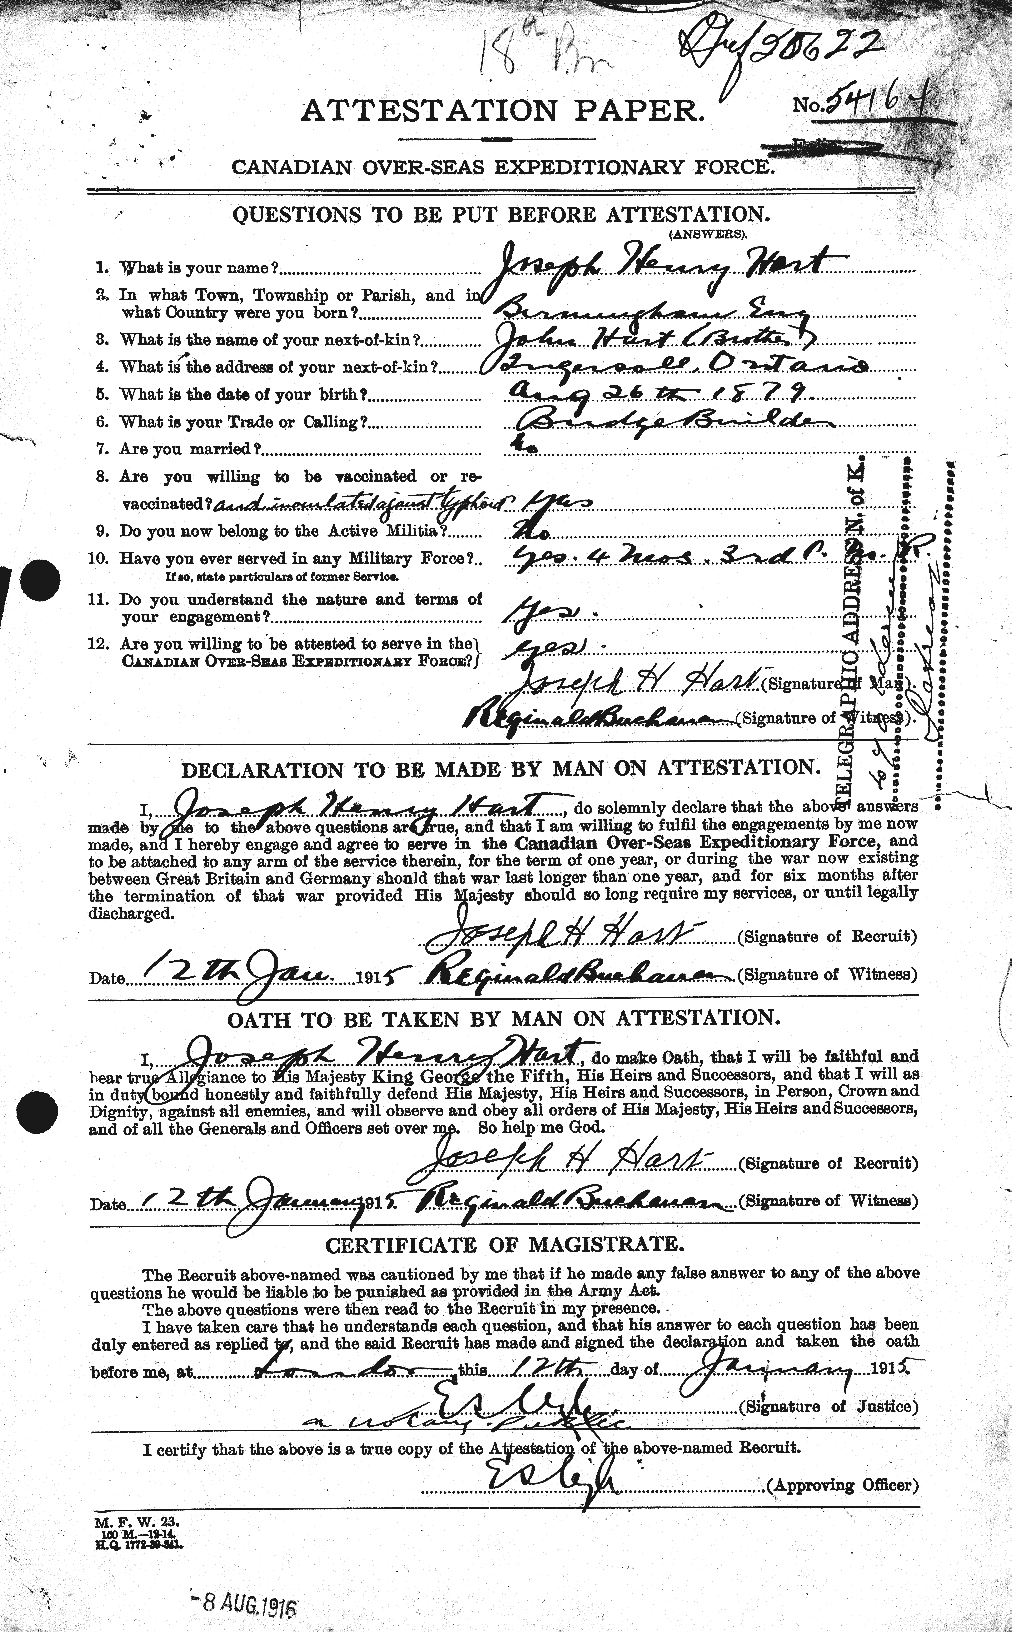 18th Bn
ATTESTATION PAPER.
No. 54164
CANADIAN OVER-SEAS EXPEDITIONARY FORCE.
QUESTIONS TO BE PUT BEFORE ATTESTATION.
(ANSWERS).
1. What is your name? Joseph Henry Hart
2. In what Town, Township or Parish, and in
what Country were you born? Birmingham Eng
3. What is the name of your next-of-kin? John Hart (Brother)
4. What is the address of your next-of-kin? Ingersoll, Ontario
5. What is the date of your birth? Aug 26th 1879.
6. What is your Trade or Calling? Bridge Builder
7. Are you married? No
8. Are you willing to be vaccinated or re-
vaccinated? and inoculated against typhoid Yes
9. Do you now belong to the Active Militia? No
10. Have you ever served in any Military Force? Yes. 4 Mos. 3rd
If so, state particulars of former Service.
11. Do you understand the nature and terms of
your engagement? Yes.
12. Are you willing to be attested to serve in the
CANADIAN OVER-SEAS EXPEDITIONARY FORCE? yes.
Joseph H Hart (Signature of Man).
Reginald Buchanan (Signature of Witness).
TELEGRAPHIC ADDRESS N. of K.
DECLARATION TO BE MADE BY MAN ON ATTESTATION.
I, Joseph Henry Hart, do solemnly declare that the above answers
made by me to the above questions are true, and that I am willing to fulfil the engagements by me now
made, and I hereby engage and agree to serve in the Canadian Over-Seas Expeditionary Force, and
to be attached to any arm of the service therein, for the term of one year, or during the war now existing
between Great Britain and Germany should that war last longer than one year, and for six months after
the termination of that war provided His Majesty should so long require my services, or until legally
discharged.
Joseph H Hart (Signature of Recruit)
Date 12th Jan. 1915 Reginald Buchanan (Signature of Witness)
OATH TO BE TAKEN BY MAN ON ATTESTATION.
I, Joseph Henry Hart, do make Oath, that I will be faithful and
bear true Allegiance to His Majesty King George the Fifth, His Heirs and Successors, and that I will as
in duty bound honestly and faithfully defend His Majesty, His Heirs and Successors, in Person, Crown and
Dignity, against all enemies, and will observe and obey all orders of His Majesty, His Heirs and Successors,
and of all the Generals and Officers set over me. So help me God.
Joseph H Hart (Signature of Recruit)
Date 12th January 1915 Reginald Buchanan (Signature of Witness)
CERTIFICATE OF MAGISTRATE.
The Recruit above-named was cautioned by me that if he made any false answer to any of the above
questions he would be liable to be punished as provided in the Army Act.
The above questions were then read to the Recruit in my presence.
I have taken care that he understands each question, and that his answer to each question has been
duly entered as replied to, and the said Recruit has made and signed the declaration and taken the oath
before me, at London this 12th day of January 1915
(Signature of Justice)
a notary public
I certify that the above is a true copy of the Attestation of the above-named Recruit.
(Approving Officer)
M. F. W. 23.
100 M.—12-14.
H.Q. 1772-39-241.
-8 AUG. 1916